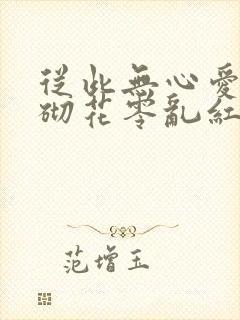 從此無心愛
砌花零亂紅
范增玉